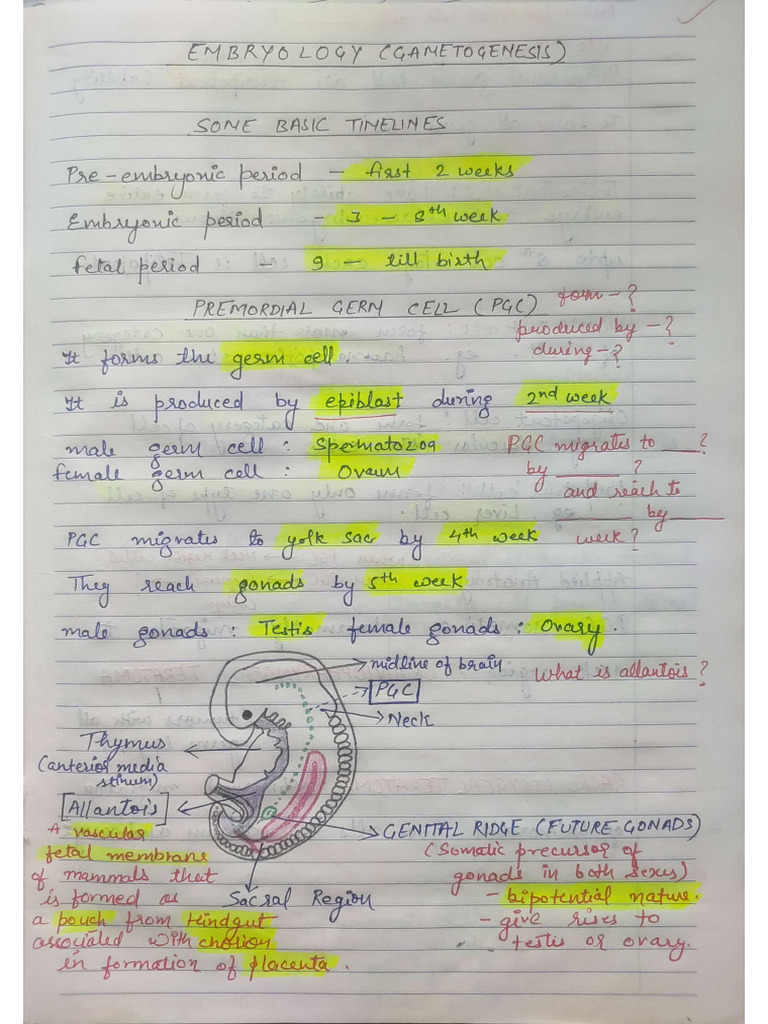 EMBRYOLOGY (GAMETOGENESIS)
SOME BASIC TIMELINES
Pre-embryonic period - first 2 weeks
Embryonic period - 3 - 8th week
Fetal period - 9 - till birth
PREMORDIAL GERM CELL (PGC)
form - ?
produced by - ?
during - ?
It forms the germ cell
It is produced by epiblast during 2nd week
male germ cell : Spermatozoa
female germ cell : Ovum
PGC migrates to ___ ?
by ______ ?
and reach to
______ by ______
week ?
PGC migrates to yolk sac by 4th week
They reach gonads by 5th week
male gonads : Testis female gonads : Ovary.
What is allantois ?
midline of brain
PGC
Neck
Thymus
(anterior media
stinum)
[Allantois]
GENITAL RIDGE (FUTURE GONADS)
Sacral Region
A vascular
fetal membrane
of mammals that
is formed as
a pouch from hindgut
associated with chorion
in formation of placenta.
(Somatic precursor of
gonads in both sexes)
- bipotential nature.
- give rises to
testis or ovary.